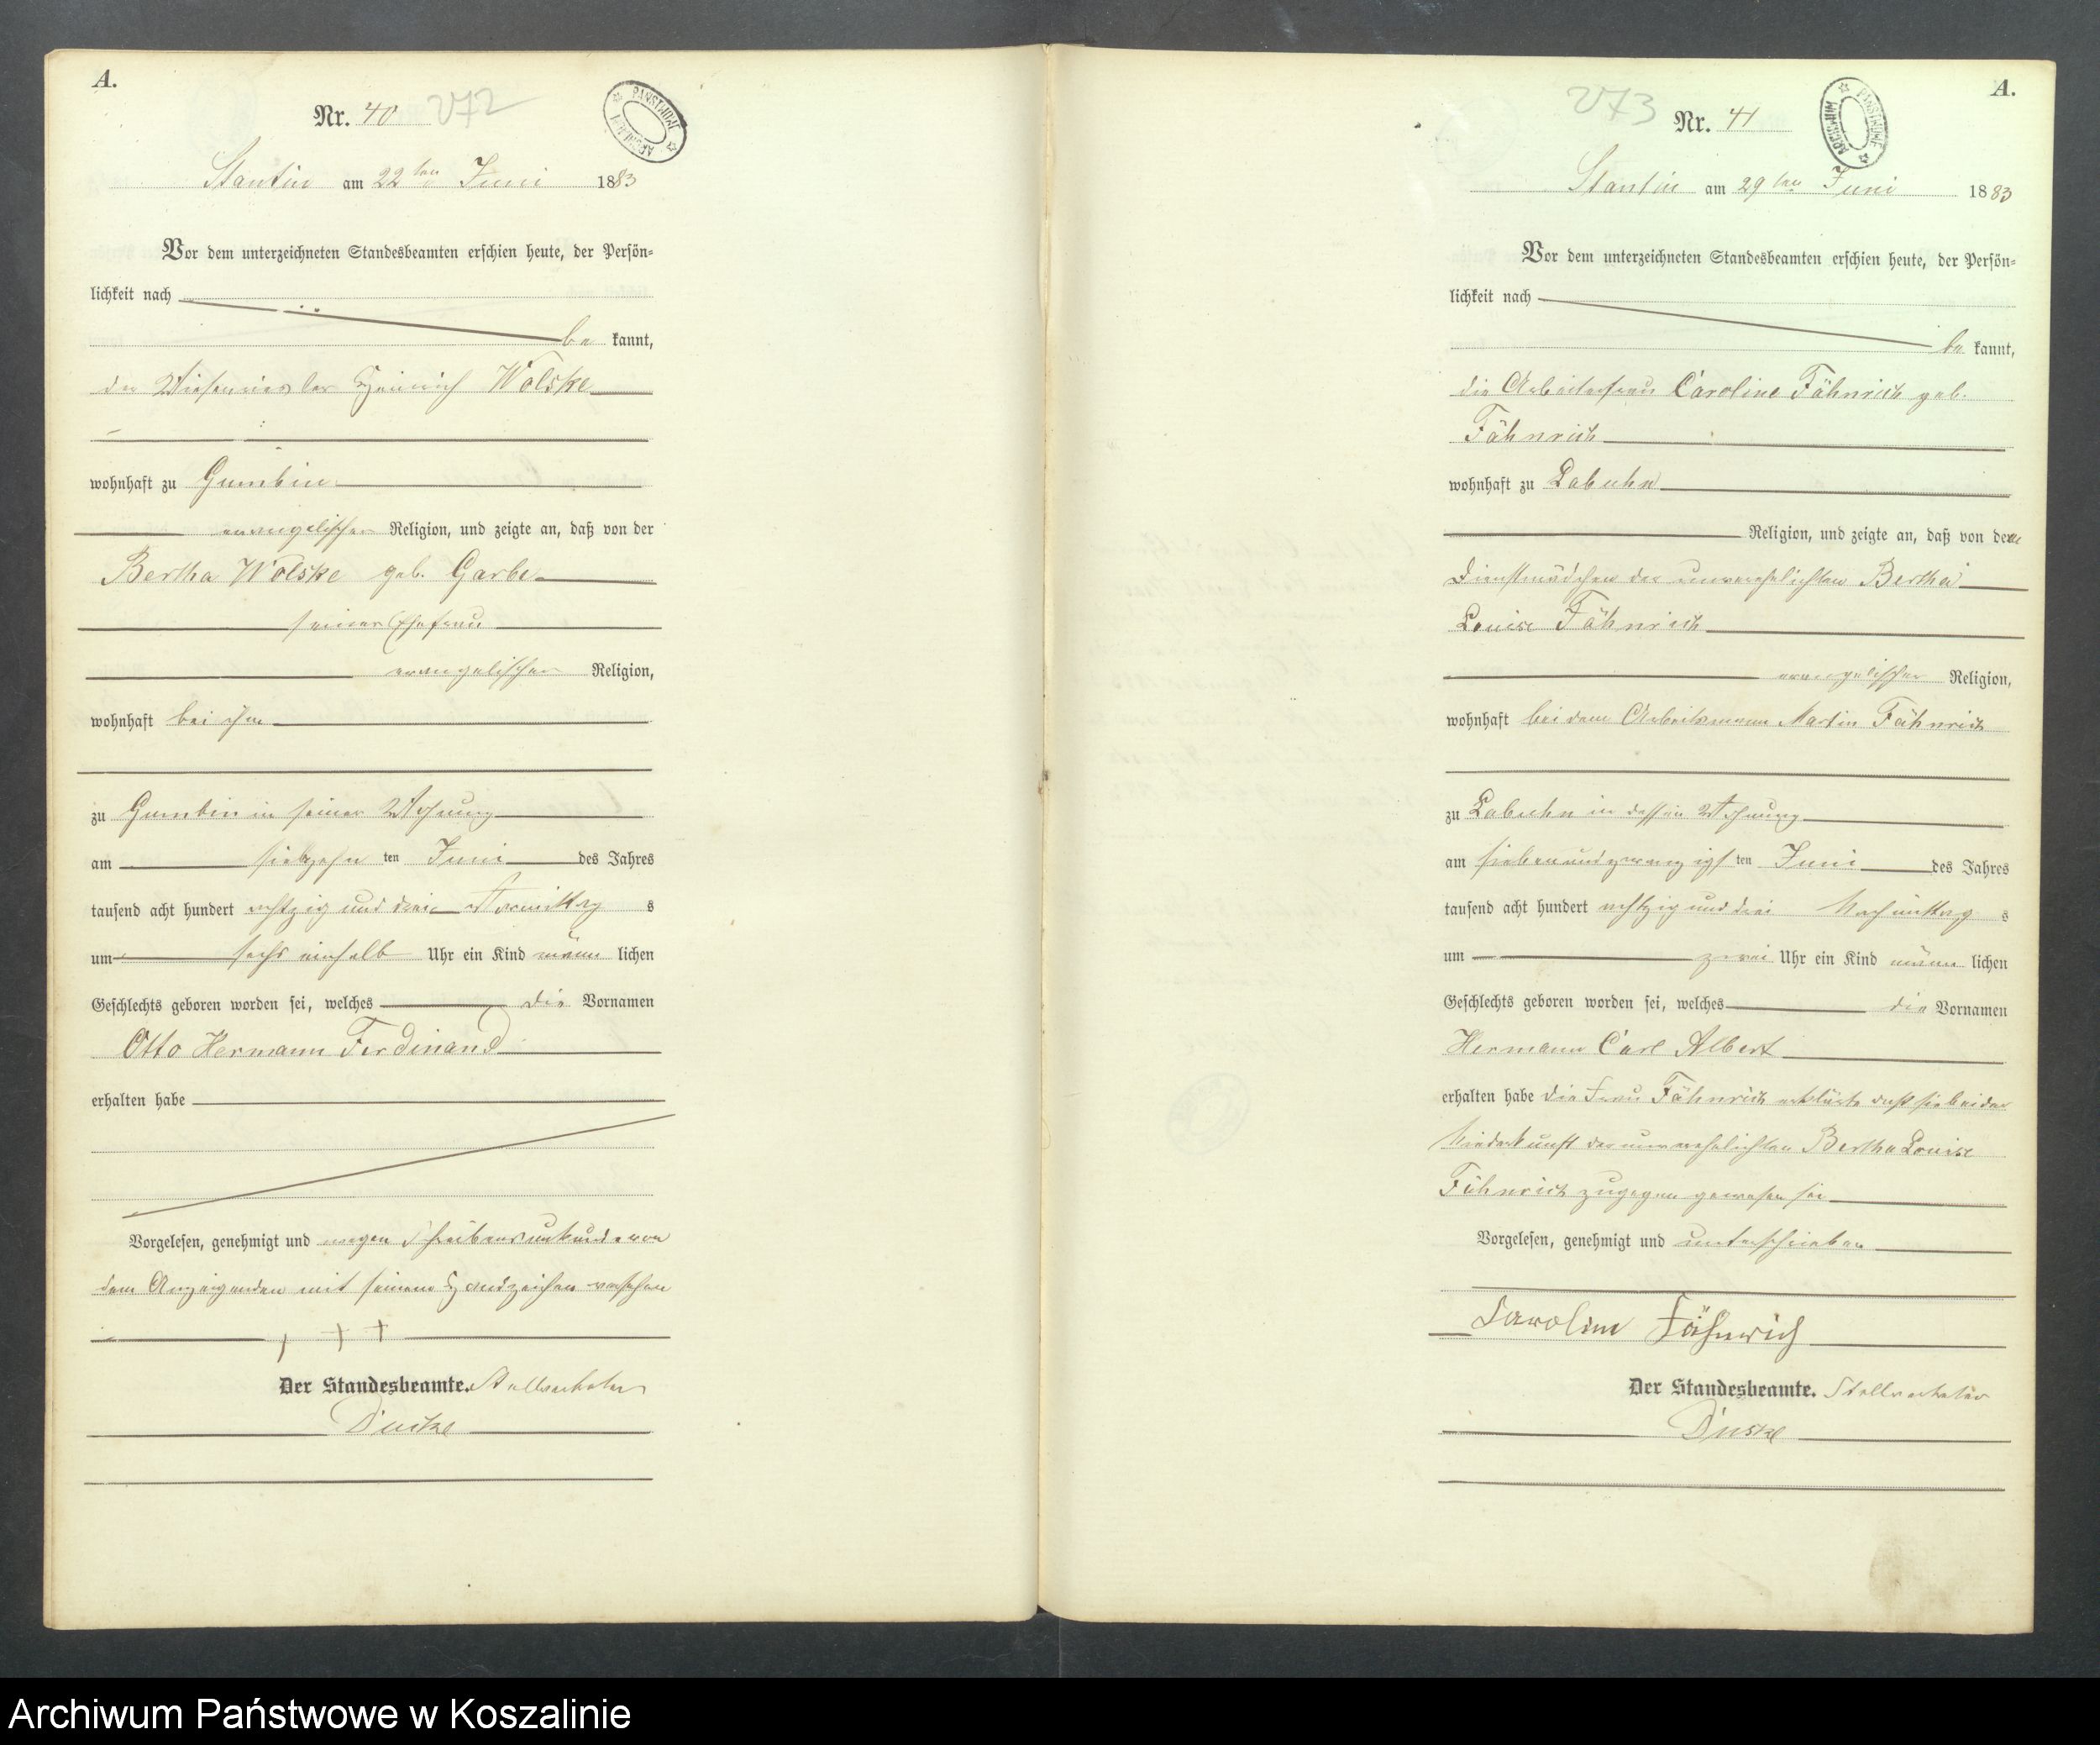 A.
Nr. 40 272
ARCHIWUM PAŃSTWOWE
Stantin am 22ten Juni 1883
Vor dem unterzeichneten Standesbeamten erschien heute, der Persön-
lichkeit nach
be kannt,
der Heinrich Wolske
wohnhaft zu Gumbin
evangelischer Religion, und zeigte an, daß von der
Bertha Wolske geb. Garbe
seiner Ehefrau
evangelischer Religion,
wohnhaft bei ihm
zu Gumbin in seiner Wohnung
am siebzehn ten Juni des Jahres
tausend acht hundert achtzig und drei Vormittag s
um sechs einhalb Uhr ein Kind männ lichen
Geschlechts geboren worden sei, welches die Vornamen
Otto Hermann Ferdinand
erhalten habe
Vorgelesen, genehmigt und wegen Schreibensunkunde von
dem Anzeigenden mit seinem Handzeichen versehen
+ + +
Der Standesbeamte. Stellvertreter
A.
273 Nr. 41
ARCHIWUM PAŃSTWOWE
Stantin am 29ten Juni 1883
Vor dem unterzeichneten Standesbeamten erschien heute, der Persön-
lichkeit nach
be kannt,
die Arbeiterfrau Caroline Fähnrich geb.
Fähnrich
wohnhaft zu Labuhn
Religion, und zeigte an, daß von dem
Dienstmädchen der unverehelichten Bertha
Louise Fähnrich
evangelischer Religion,
wohnhaft bei dem Arbeitsmann Martin Fähnrich
zu Labuhn in dessen Wohnung
am siebenundzwanzigs ten Juni des Jahres
tausend acht hundert achtzig und drei Nachmittag s
um zwei Uhr ein Kind männ lichen
Geschlechts geboren worden sei, welches die Vornamen
Hermann Carl Albert
erhalten habe die Frau Fähnrich erklärte daß sie bei der
Niederkunft der unverehelichten Bertha Louise
Fähnrich zugegen gewesen sei
Vorgelesen, genehmigt und unterschrieben
Caroline Fähnrich
Der Standesbeamte. Stellvertreter
Archiwum Państwowe w Koszalinie